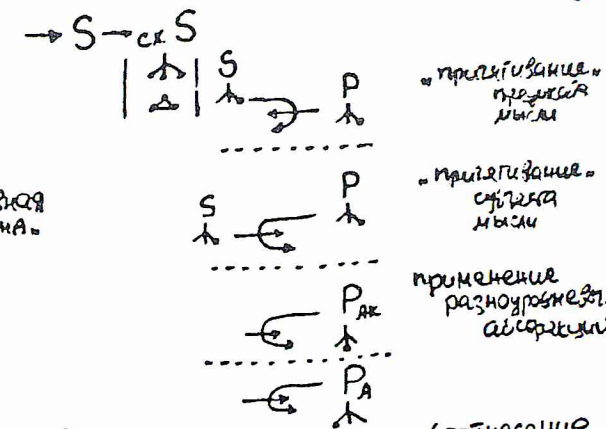 S ск S
S
P
„притягивание„
предиката
мысли
ная
на„
S
P
„притягивание„
субъекта
мысли
Pак
применение
разноуровнев.
абстракций
PА